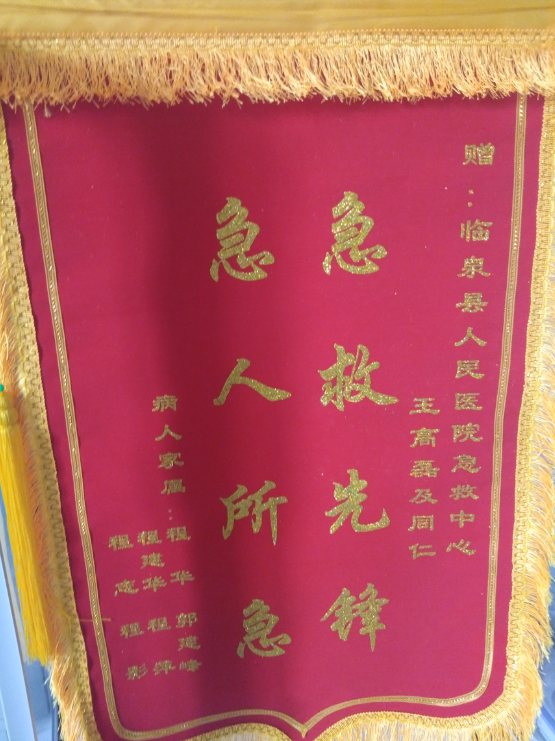 赠：临泉县人民医院急救中心
王高磊及同仁
急救先锋
急人所急
病人家属：
程华 郭建峰
程建华 程
程志 程影